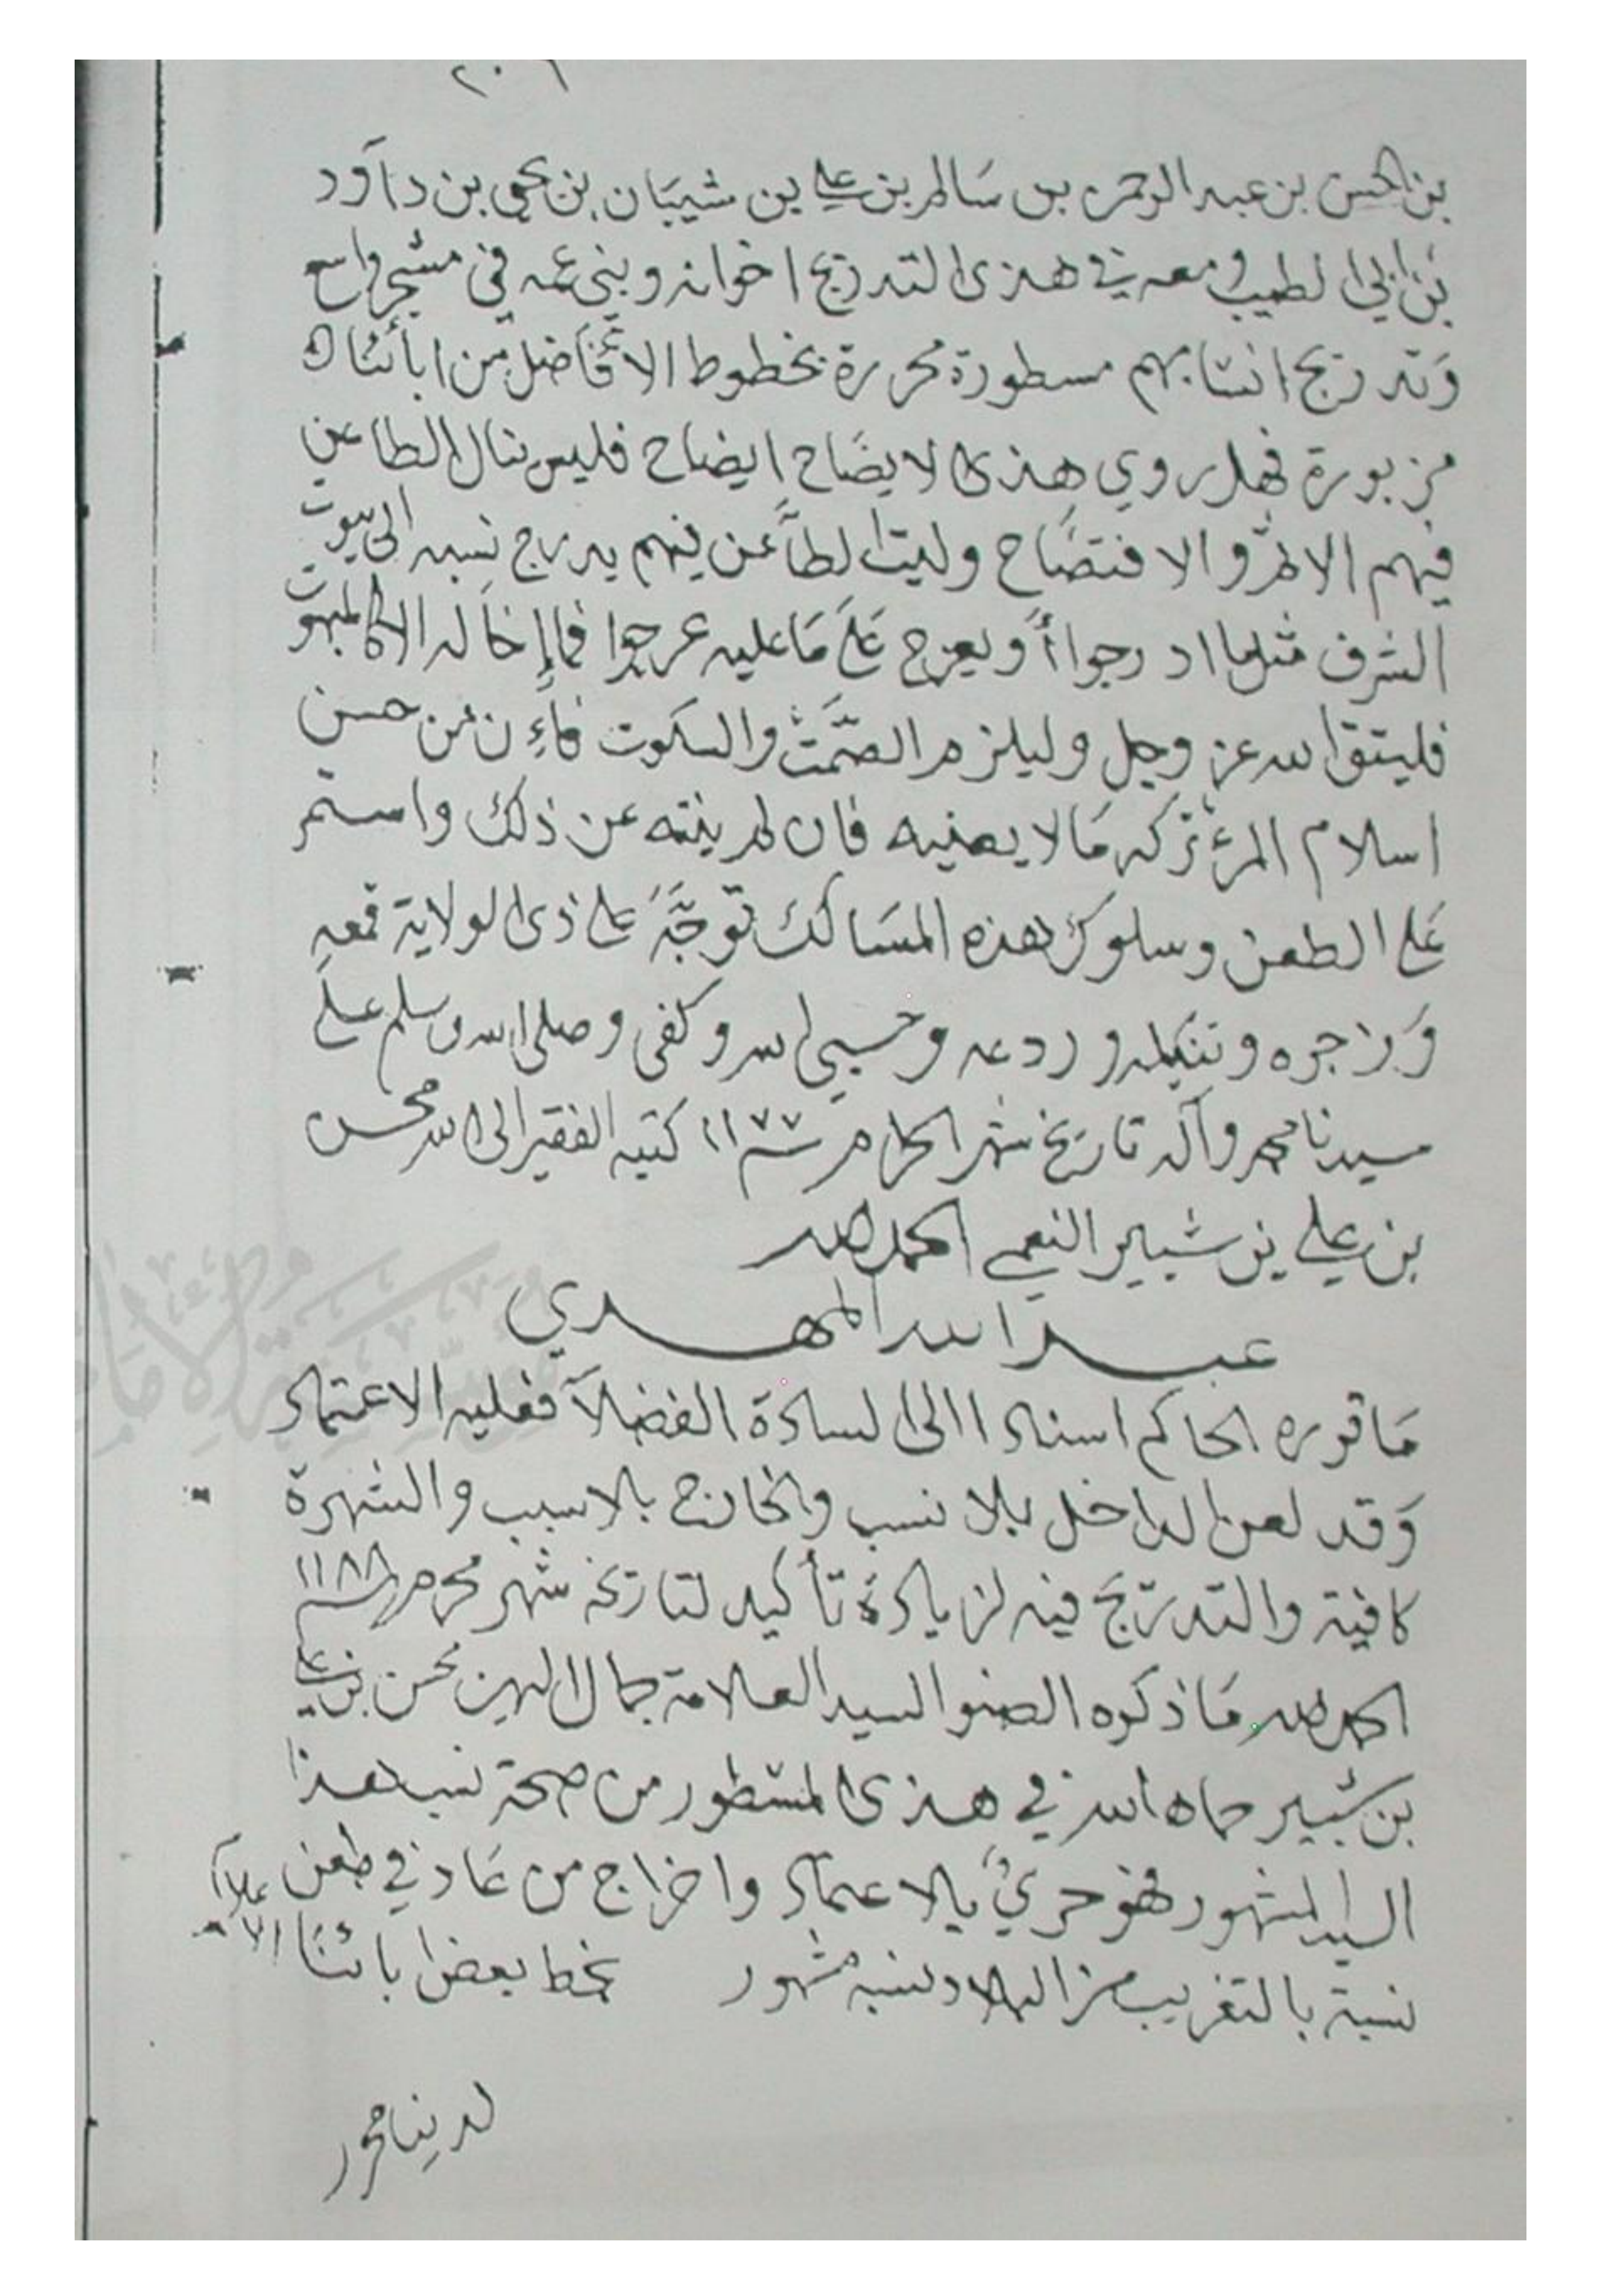 ٢٠٦
بن الحسن بن عبد الرحمن بن سَالم بن علي بن شيبَان بن يحيى بن داوَد
بن ابي الطيب ومعه في هذى التدريج اخوانه وبني عمه في مشجر واسع
وَتدريج انسابهم مسطورة محررة بخطوط الافَاضل من ابأئنا
مزبورة فهل روي هذى لايضَاح ايضاح فليس ينال الطاعن
فيهم الا والافتضَاح وليت الطاعن فيهم يدرج نسبه الى بيوت
الشرف مثلما ادرجوا أو يعرج عَلىَ مَا عليه عرجوا فما إخَاله الا كالمبهوت
فليتق الله عز وجل وليلزم الصَّمت والسكوت فاءِن من حسن
اسلام المرء تركه مَا لا يعنيه فان لم ينته عن ذلك واستمر
عَلى الطعن وسلوك هذه المسَالك توجَّهَ على ذى الولاية قمعه
وَزاجره وتنكيله وردعه وحسبي الله وكفى وصلى الله وسلم علىَ
سيدنا محمد وآله تاريخ شهر الحرام سنة ١١٧٧ كتبه الفقير الى الله محسن
بن علي بن شبير النعمي الحمد لله
عبد الله المهدي
مَا قرره الحاكم اسنادا الى السادة الفضلآ فعليه الاعتماد
وَقد لعن الداخل بلا نسب والخارج بلا سبب والشهرة
كافية والتدريج فيه لزيادة تأكيد لتاريخه شهر محرم سنة ١١٨٨
الحمد لله مَا ذكره الصنو السيد العلامة جمال الدين محسن بن علي
بن شبير حماه الله في هذى المسطور من صحة نسب هذا
السيد المشهور فهو حريٌ بالاعتماد واخراج من عَاد في طعن
نسبة بالتغريب من البلاد ونسبه مشهور بخط بعض ابائنَا
لدينا محرر